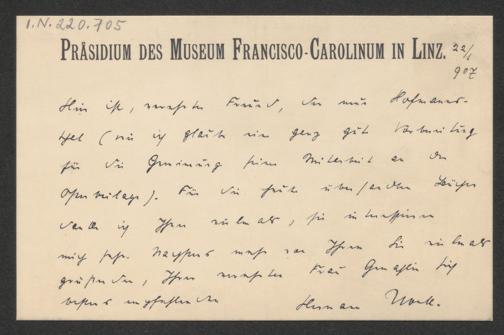 I.N. 220.705
PRÄSIDIUM DES MUSEUM FRANCISCO-CAROLINUM IN LINZ.
22/1
907
Hier ist, verehrter Freund, der neue Hofmanns-
thal (wie ich glaube eine ganz gute Vorbereitung
für die Gewinnung seiner Mitarbeit an der
). Für die heute übersandten Bücher
danke ich Ihnen vielmals, sie interessieren
mich sehr. Nächstens mehr von Ihrem Sie vielmals
grüßenden, Ihrer verehrten Frau Gemahlin sich
bestens empfehlenden
Hermann Ubell.